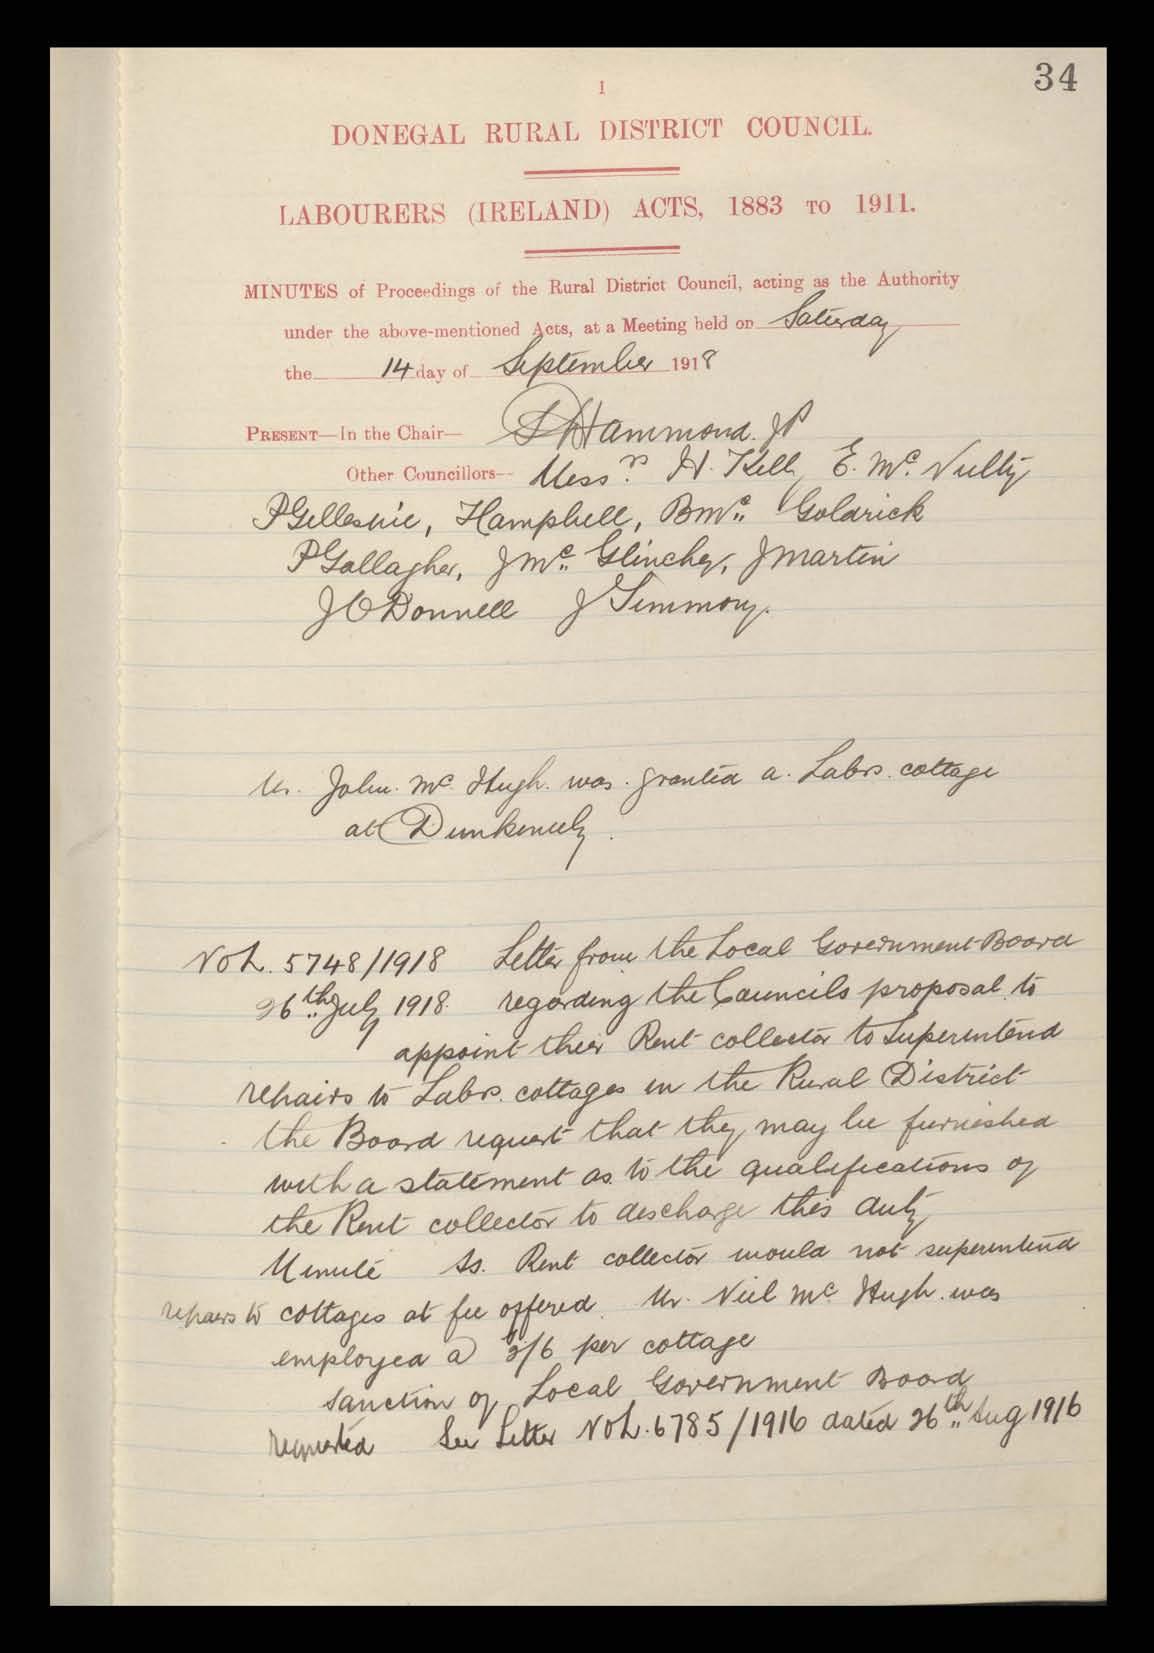 34
1
DONEGAL RURAL DISTRICT COUNCIL.
LABOURERS (IRELAND) ACTS, 1883 TO 1911.
MINUTES of Proceedings of the Rural District Council, acting as the Authority
under the above-mentioned Acts, at a Meeting held on Saturday
the 14 day of September 1918
PRESENT—In the Chair— Hammond. JP
Other Councillors— Messrs H. Kelly E. Mc. Nulty
P Gillespie, H Campbell, B Mc. Goldrick
P Gallagher, J Mc. Glinchey, J Martin
J O Donnell J Timmony.
Mr. John Mc Hugh. was granted a. Labrs. cottage
at Dunkineely.
No L. 5748/1918 Letter from the Local Government Board
26th July 1918. regarding the Councils proposal to
appoint their Rent collector to Superintend
repairs to Labrs. cottages in the Rural District
the Board request that they may be furnished
with a statement as to the qualifications of
the Rent collector to discharge this duty
Minute As. Rent collector would not superintend
repairs to cottages at fee offered. Mr. Niel Mc Hugh. was
employed a 2/6 per cottage
sanction of Local Government Board
requested See Letter No L. 6785/1916 dated 26th Aug 1916